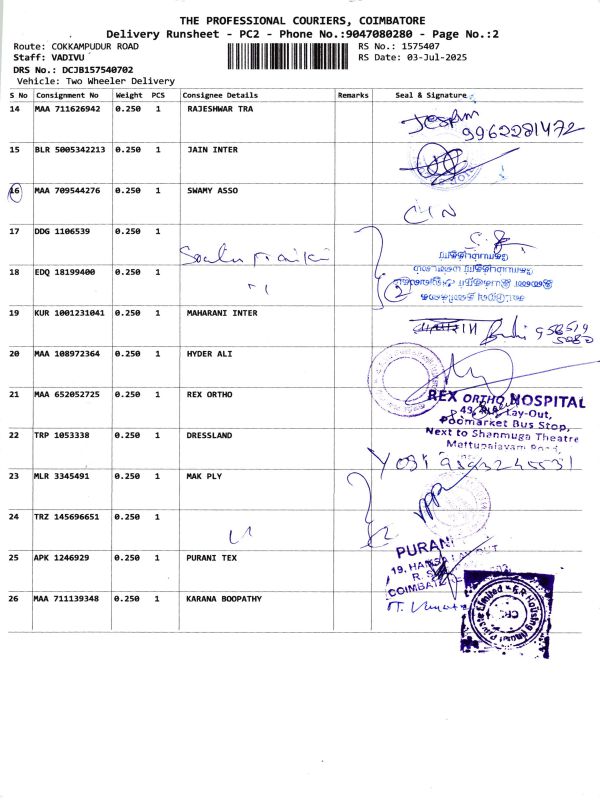 THE PROFESSIONAL COURIERS, COIMBATORE
Delivery Runsheet - PC2 - Phone No.:9047080280 - Page No.:2
Route: COKKAMPUDUR ROAD RS No.: 1575407
Staff: VADIVU RS Date: 03-Jul-2025
DRS No.: DCJB157540702
Vehicle: Two Wheeler Delivery
S No Consignment No Weight PCS Consignee Details Remarks Seal & Signature
14 MAA 711626942 0.250 1 RAJESHWAR TRA
9962281472
15 BLR 5005342213 0.250 1 JAIN INTER
16 MAA 709544276 0.250 1 SWAMY ASSO
17 DDG 1106539 0.250 1
18 EDQ 18199400 0.250 1
2
19 KUR 1001231041 0.250 1 MAHARANI INTER
20 MAA 108972364 0.250 1 HYDER ALI
21 MAA 652052725 0.250 1 REX ORTHO
REX ORTHO HOSPITAL
Lay-Out,
Poomarket Bus Stop,
Next to Shanmuga Theatre
Mettupalayam Road,
22 TRP 1053338 0.250 1 DRESSLAND
23 MLR 3345491 0.250 1 MAK PLY
24 TRZ 145696651 0.250 1
25 APK 1246929 0.250 1 PURANI TEX
PURANI
26 MAA 711139348 0.250 1 KARANA BOOPATHY